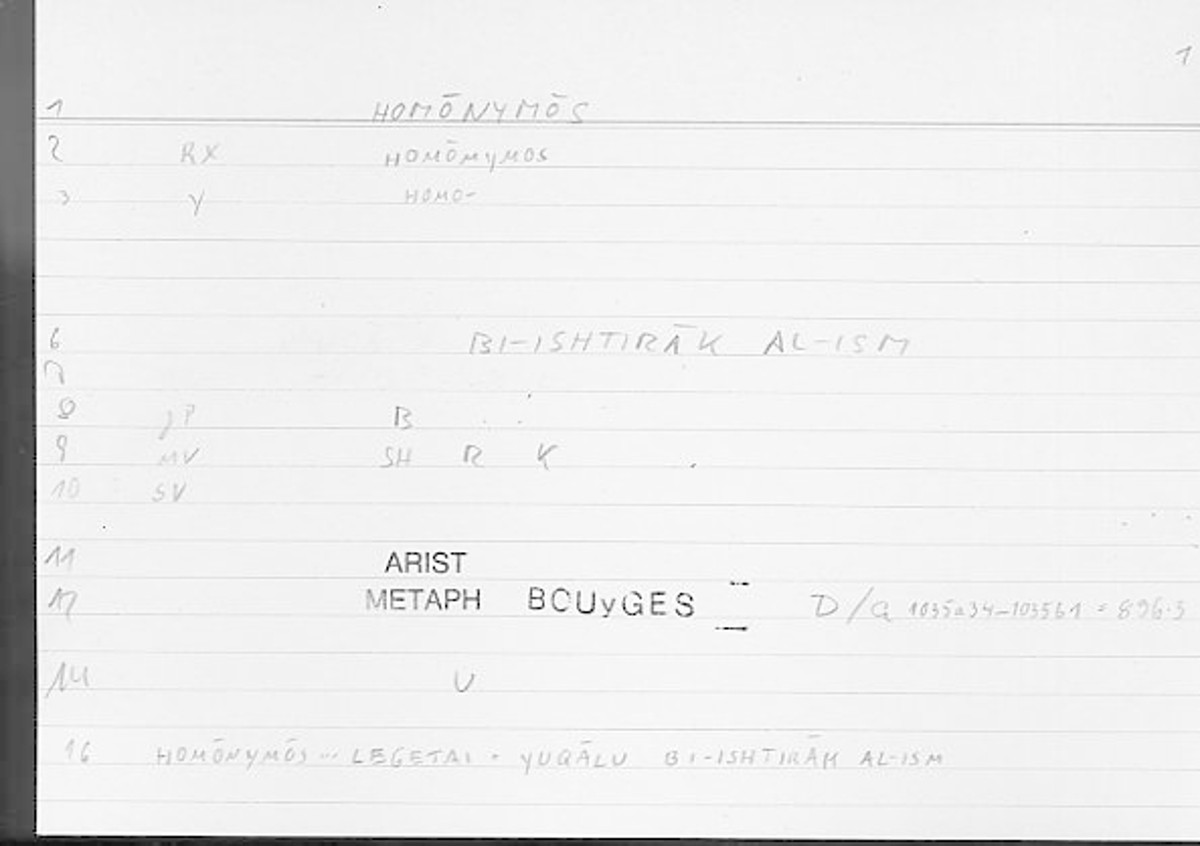 1
1 HOMŌNYMŌS
2 RX HOMŌNYMOS
3 Y HOMO-
6 BI-ISHTIRĀK AL-ISM
7
8 JP B
9 MV SH R K
10 SV
11 ARIST
12 METAPH BOUyGES D/G 1035a34-1035b1 = 896.5
14 U
16 HOMŌNYMŌS ... LEGETAI = YUQĀLU BI-ISHTIRĀK AL-ISM